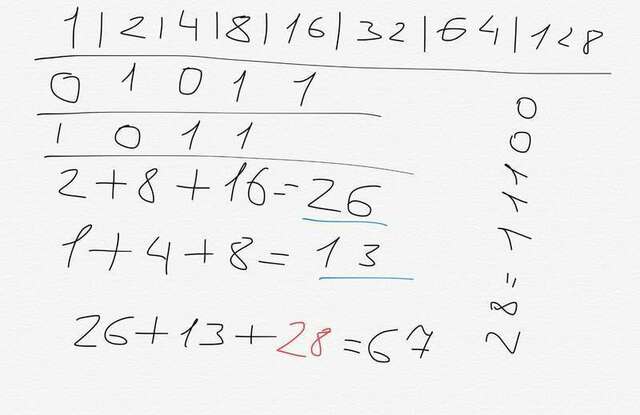 1|2|4|8|16|32|64|128
0 1 0 1 1
1 0 1 1
2+8+16=26
1+4+8=13
26+13+28=67
28=11100